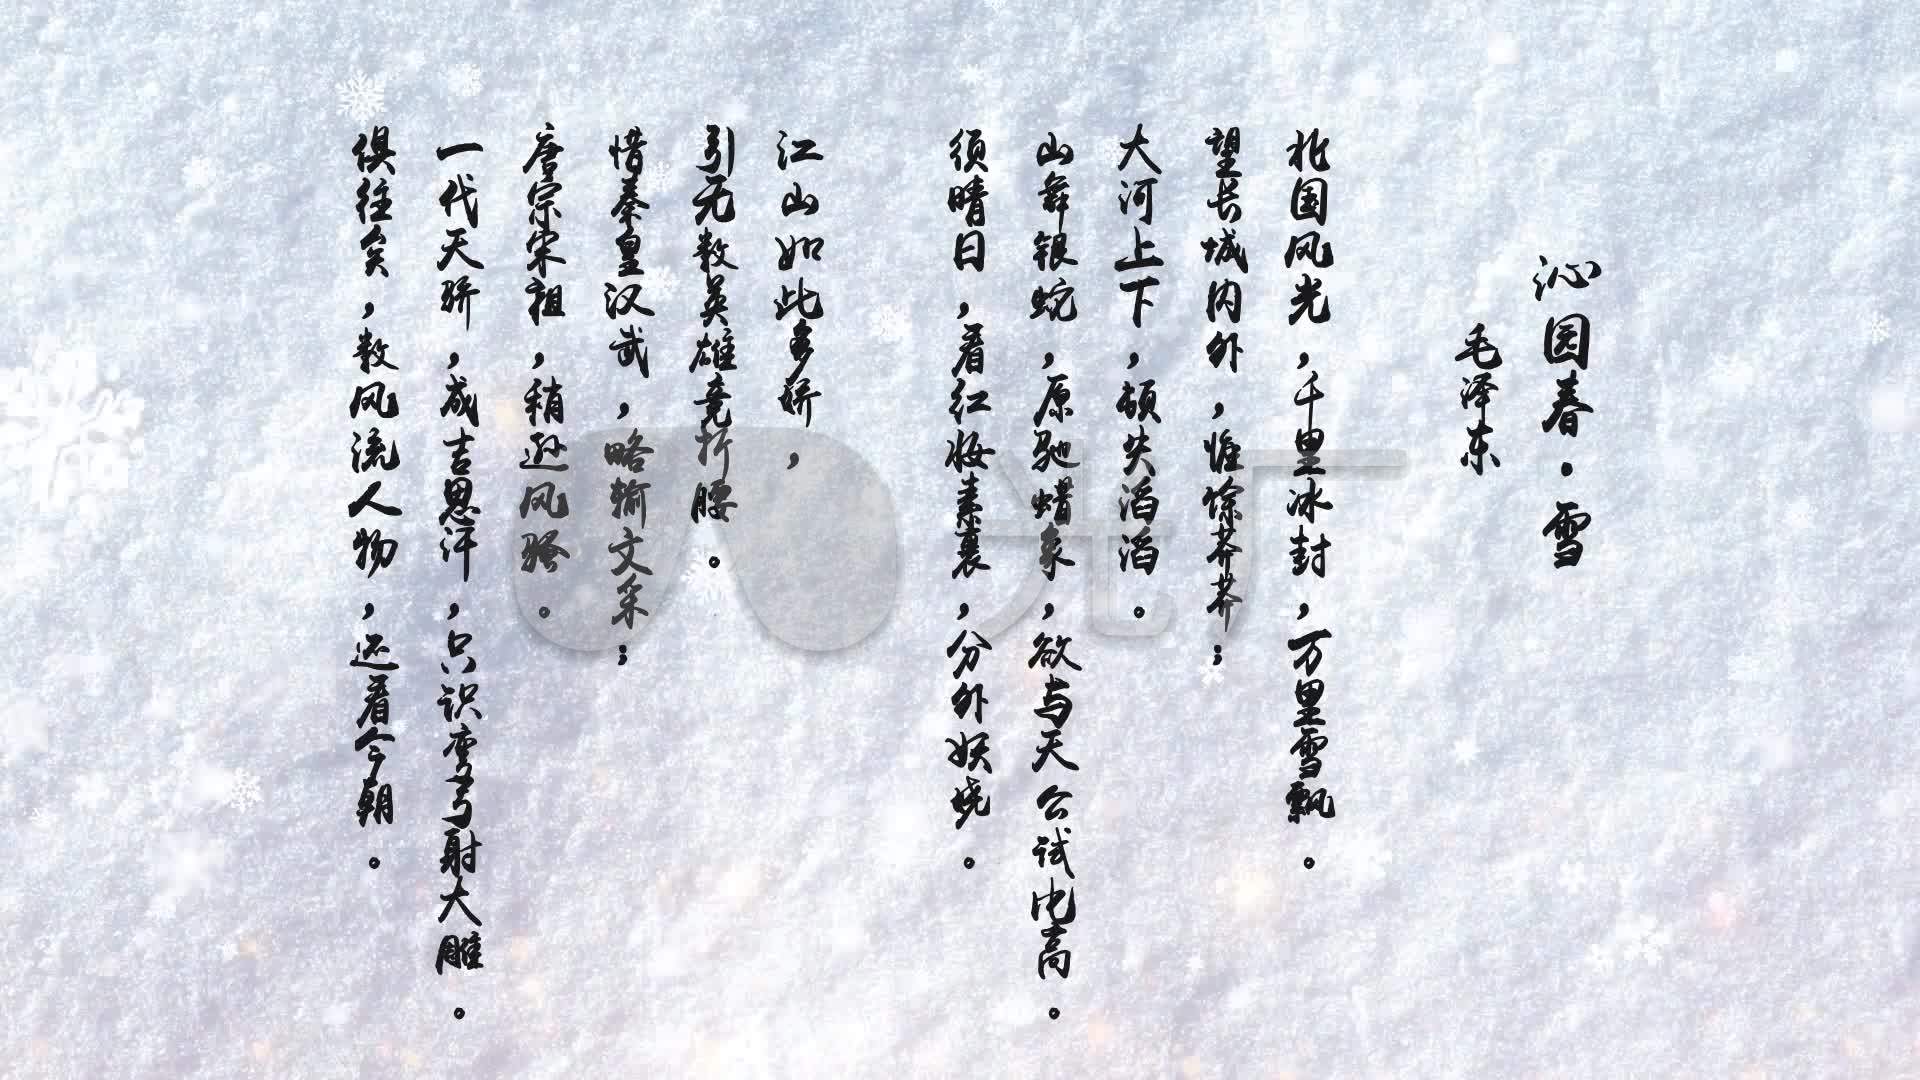 沁园春·雪
毛泽东
北国风光，千里冰封，万里雪飘。
望长城内外，惟馀莽莽；
大河上下，顿失滔滔。
山舞银蛇，原驰蜡象，欲与天公试比高。
须晴日，看红妆素裹，分外妖娆。
江山如此多娇，
引无数英雄竞折腰。
惜秦皇汉武，略输文采；
唐宗宋祖，稍逊风骚。
一代天骄，成吉思汗，只识弯弓射大雕。
俱往矣，数风流人物，还看今朝。
光厂